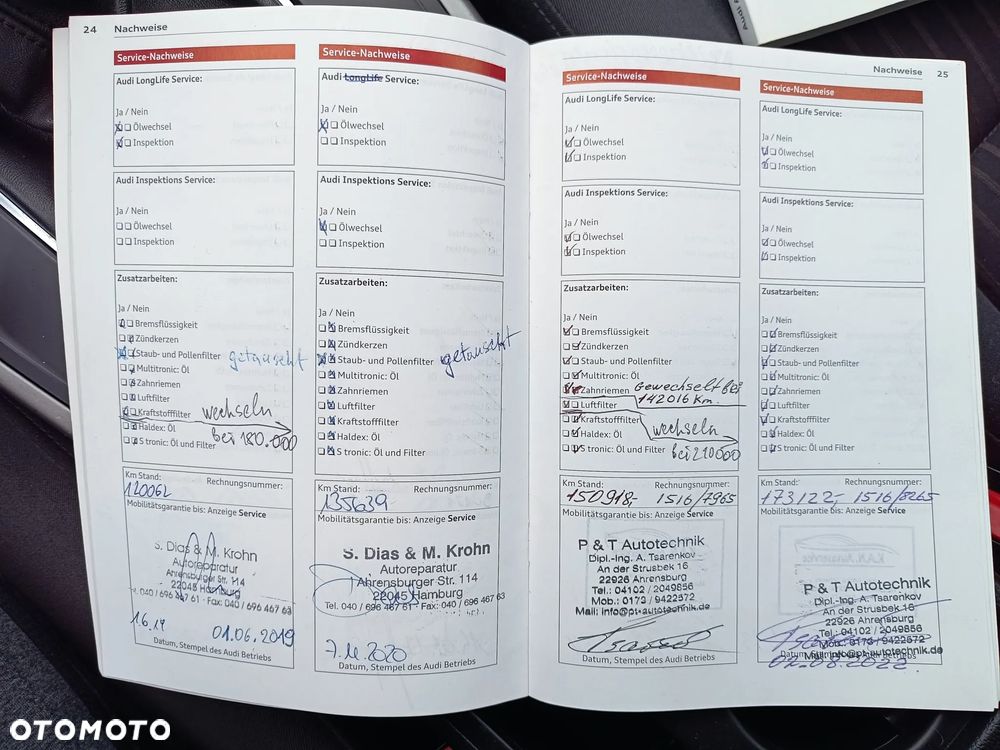 24 Nachweise
Service-Nachweise
Audi LongLife Service:
Ja / Nein
Ölwechsel
Inspektion
Audi Inspektions Service:
Ja / Nein
Ölwechsel
Inspektion
Zusatzarbeiten:
Ja / Nein
Bremsflüssigkeit
Zündkerzen
Staub- und Pollenfilter getauscht
Multitronic: Öl
Zahnriemen
Luftfilter
Kraftstofffilter wechseln
Haldex: Öl bei 180.000
S tronic: Öl und Filter
Km Stand: Rechnungsnummer:
120062
Mobilitätsgarantie bis: Anzeige Service
S. Dias & M. Krohn
Autoreparatur
Ahrensburger Str. 114
22045 Hamburg
Tel. 040 / 696 467 61 · Fax: 040 / 696 467 63
01.06.2019
Datum, Stempel des Audi Betriebs
Service-Nachweise
Audi LongLife Service:
Ja / Nein
Ölwechsel
Inspektion
Audi Inspektions Service:
Ja / Nein
Ölwechsel
Inspektion
Zusatzarbeiten:
Ja / Nein
Bremsflüssigkeit
Zündkerzen
Staub- und Pollenfilter getauscht
Multitronic: Öl
Zahnriemen
Luftfilter
Kraftstofffilter
Haldex: Öl
S tronic: Öl und Filter
Km Stand: Rechnungsnummer:
135639
Mobilitätsgarantie bis: Anzeige Service
S. Dias & M. Krohn
Autoreparatur
Ahrensburger Str. 114
22045 Hamburg
Tel. 040 / 696 467 61 · Fax: 040 / 696 467 63
2020
Datum, Stempel des Audi Betriebs
Nachweise 25
Service-Nachweise
Audi LongLife Service:
Ja / Nein
Ölwechsel
Inspektion
Audi Inspektions Service:
Ja / Nein
Ölwechsel
Inspektion
Zusatzarbeiten:
Ja / Nein
Bremsflüssigkeit
Zündkerzen
Staub- und Pollenfilter
Multitronic: Öl
Zahnriemen Gewechselt bei
Luftfilter 142016 Km.
Kraftstofffilter wechseln
Haldex: Öl bei 210000
S tronic: Öl und Filter
Km Stand: Rechnungsnummer:
150918,- 1516/7965
Mobilitätsgarantie bis: Anzeige Service
P & T Autotechnik
Dipl.-Ing. A. Tsarenkov
An der Strusbek 16
22926 Ahrensburg
Tel.: 04102 / 2049856
Mob.: 0173 / 9422572
Mail: info@pt-autotechnik.de
Datum, Stempel des Audi Betriebs
Service-Nachweise
Audi LongLife Service:
Ja / Nein
Ölwechsel
Inspektion
Audi Inspektions Service:
Ja / Nein
Ölwechsel
Inspektion
Zusatzarbeiten:
Ja / Nein
Bremsflüssigkeit
Zündkerzen
Staub- und Pollenfilter
Multitronic: Öl
Zahnriemen
Luftfilter
Kraftstofffilter
Haldex: Öl
S tronic: Öl und Filter
Km Stand: Rechnungsnummer:
173122,- 1516/8265
Mobilitätsgarantie bis: Anzeige Service
P & T Autotechnik
Dipl.-Ing. A. Tsarenkov
An der Strusbek 16
22926 Ahrensburg
Tel.: 04102 / 2049856
Mob.: 0173 / 9422572
Mail: info@pt-autotechnik.de
OTOMOTO